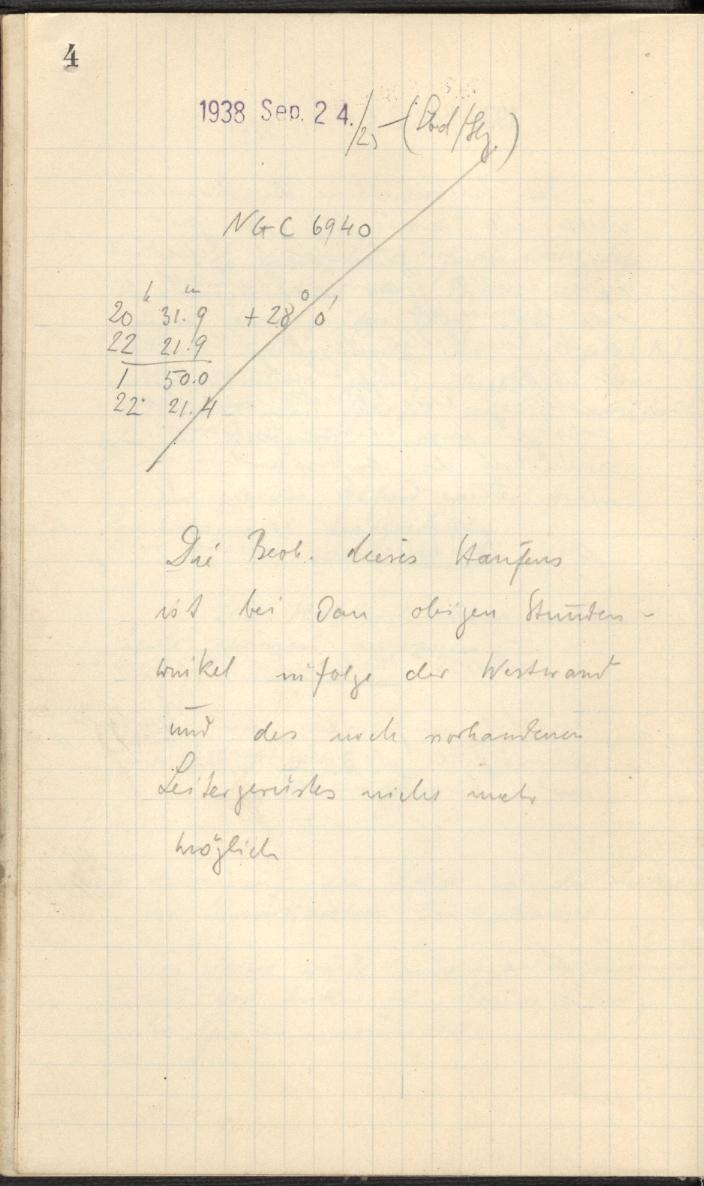 4
1938 Sep. 24./25
NGC 6940
20h 31m.9 +28° 0'
22 21.9
1 50.0
22 21.4
Die Beob. dieses Haufens
ist bei dem obigen Stunden-
winkel infolge der Westwand
und des noch vorhandenen
Leitergerüstes nicht mehr
möglich